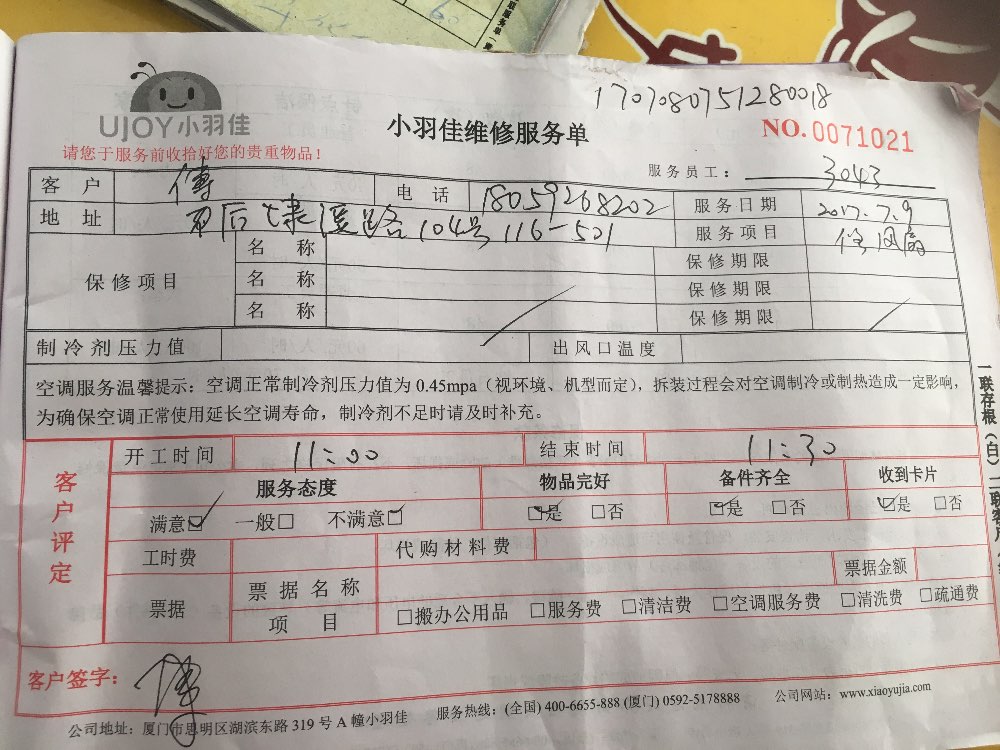 1707080751280018
UJOY小羽佳
小羽佳维修服务单
NO.0071021
请您于服务前收拾好您的贵重物品！
服务员工： 3043
客户 傅 电话 18059268202 服务日期 2017.7.9
地址 后 溪路104号116-501 服务项目 修风扇
保修项目
名称 保修期限
名称 保修期限
名称 保修期限
制冷剂压力值 出风口温度
空调服务温馨提示：空调正常制冷剂压力值为0.45mpa（视环境、机型而定），拆装过程会对空调制冷或制热造成一定影响，
为确保空调正常使用延长空调寿命，制冷剂不足时请及时补充。
客户评定
开工时间 11:00 结束时间 11:30
服务态度 物品完好 备件齐全 收到卡片
满意☑ 一般□ 不满意☑ ☑是 □否 ☑是 □否 ☑是 □否
工时费 代购材料费
票据 票据名称 票据金额
项目 □搬办公用品 □服务费 □清洁费 □空调服务费 □清洗费 □疏通费
客户签字： 傅
公司地址：厦门市思明区湖滨东路319号A幢小羽佳 服务热线：(全国) 400-6655-888 (厦门) 0592-5178888 公司网站：www.xiaoyujia.com
一联存根（白）二联客户